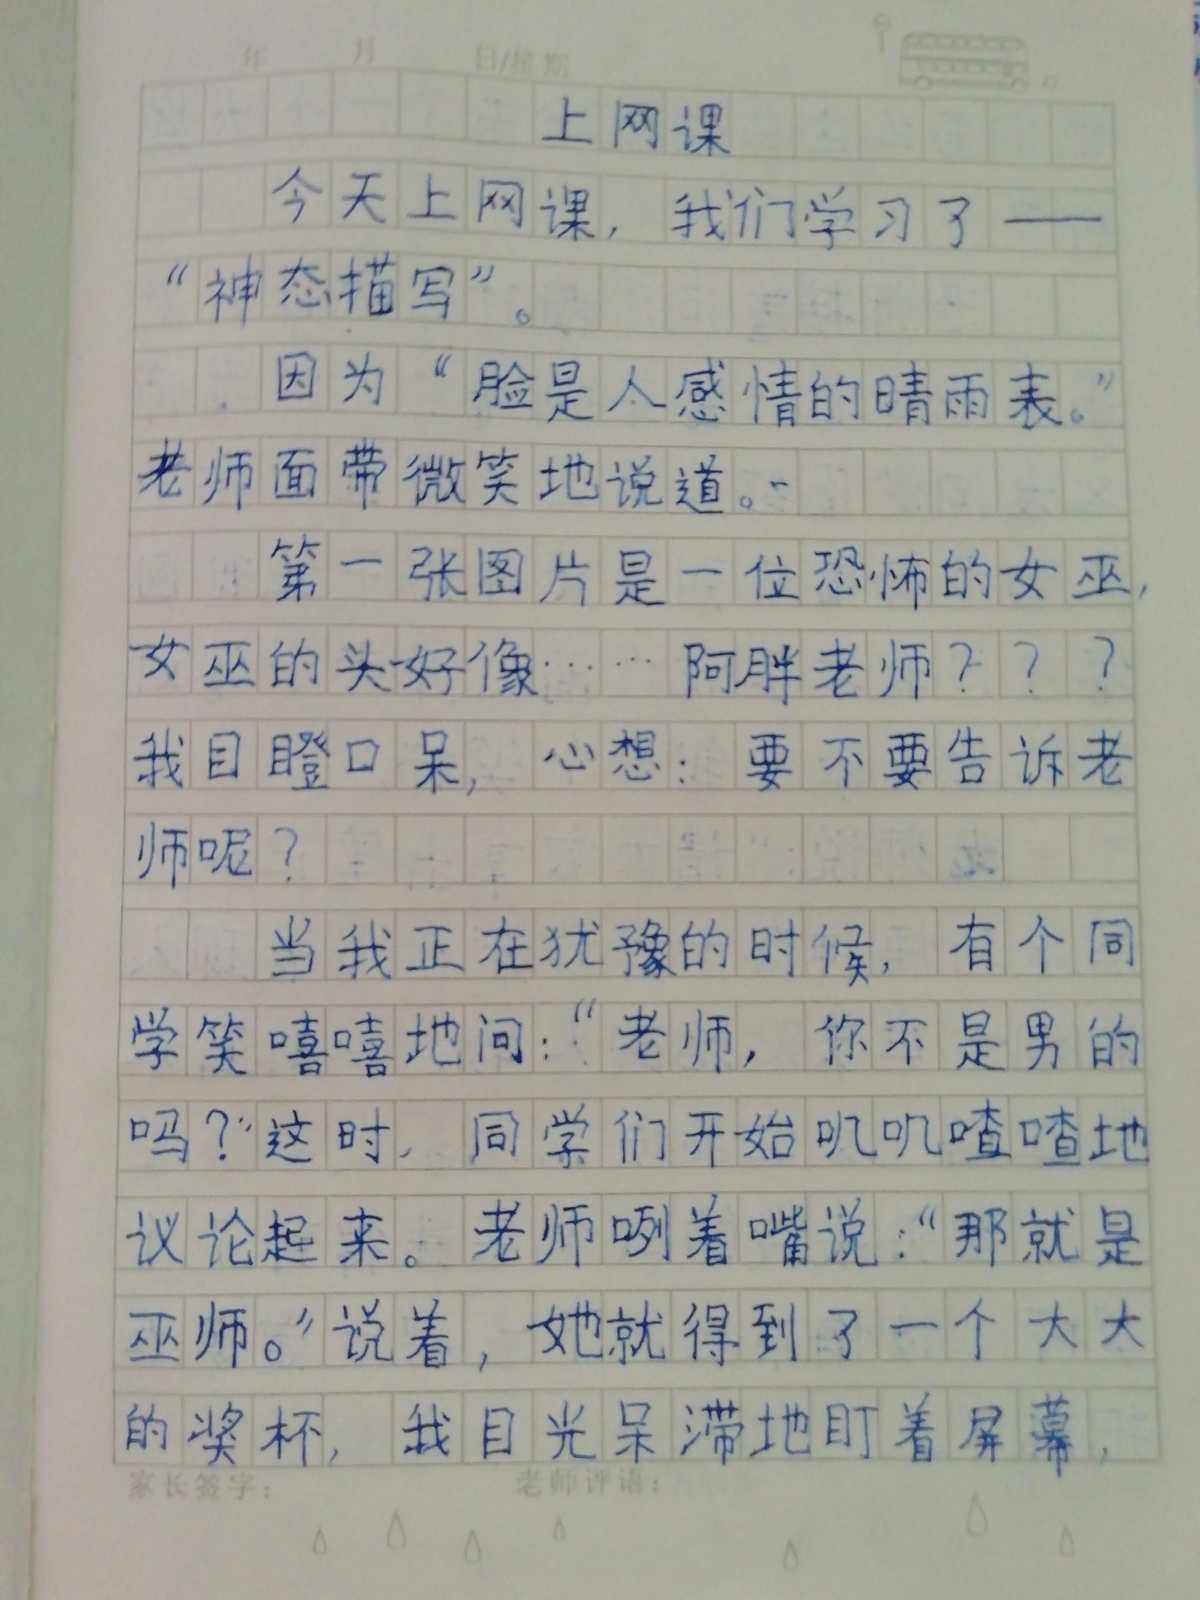 年 月 日/星期
上网课
今天上网课，我们学习了——
“神态描写”。
因为“脸是人感情的晴雨表。”
老师面带微笑地说道。
第一张图片是一位恐怖的女巫，
女巫的头好像……阿胖老师？？？
我目瞪口呆，心想：要不要告诉老
师呢？
当我正在犹豫的时候，有个同
学笑嘻嘻地问：“老师，你不是男的
吗？”这时，同学们开始叽叽喳喳地
议论起来。老师咧着嘴说：“那就是
巫师。”说着，她就得到了一个大大
的奖杯，我目光呆滞地盯着屏幕，
家长签字： 老师评语：